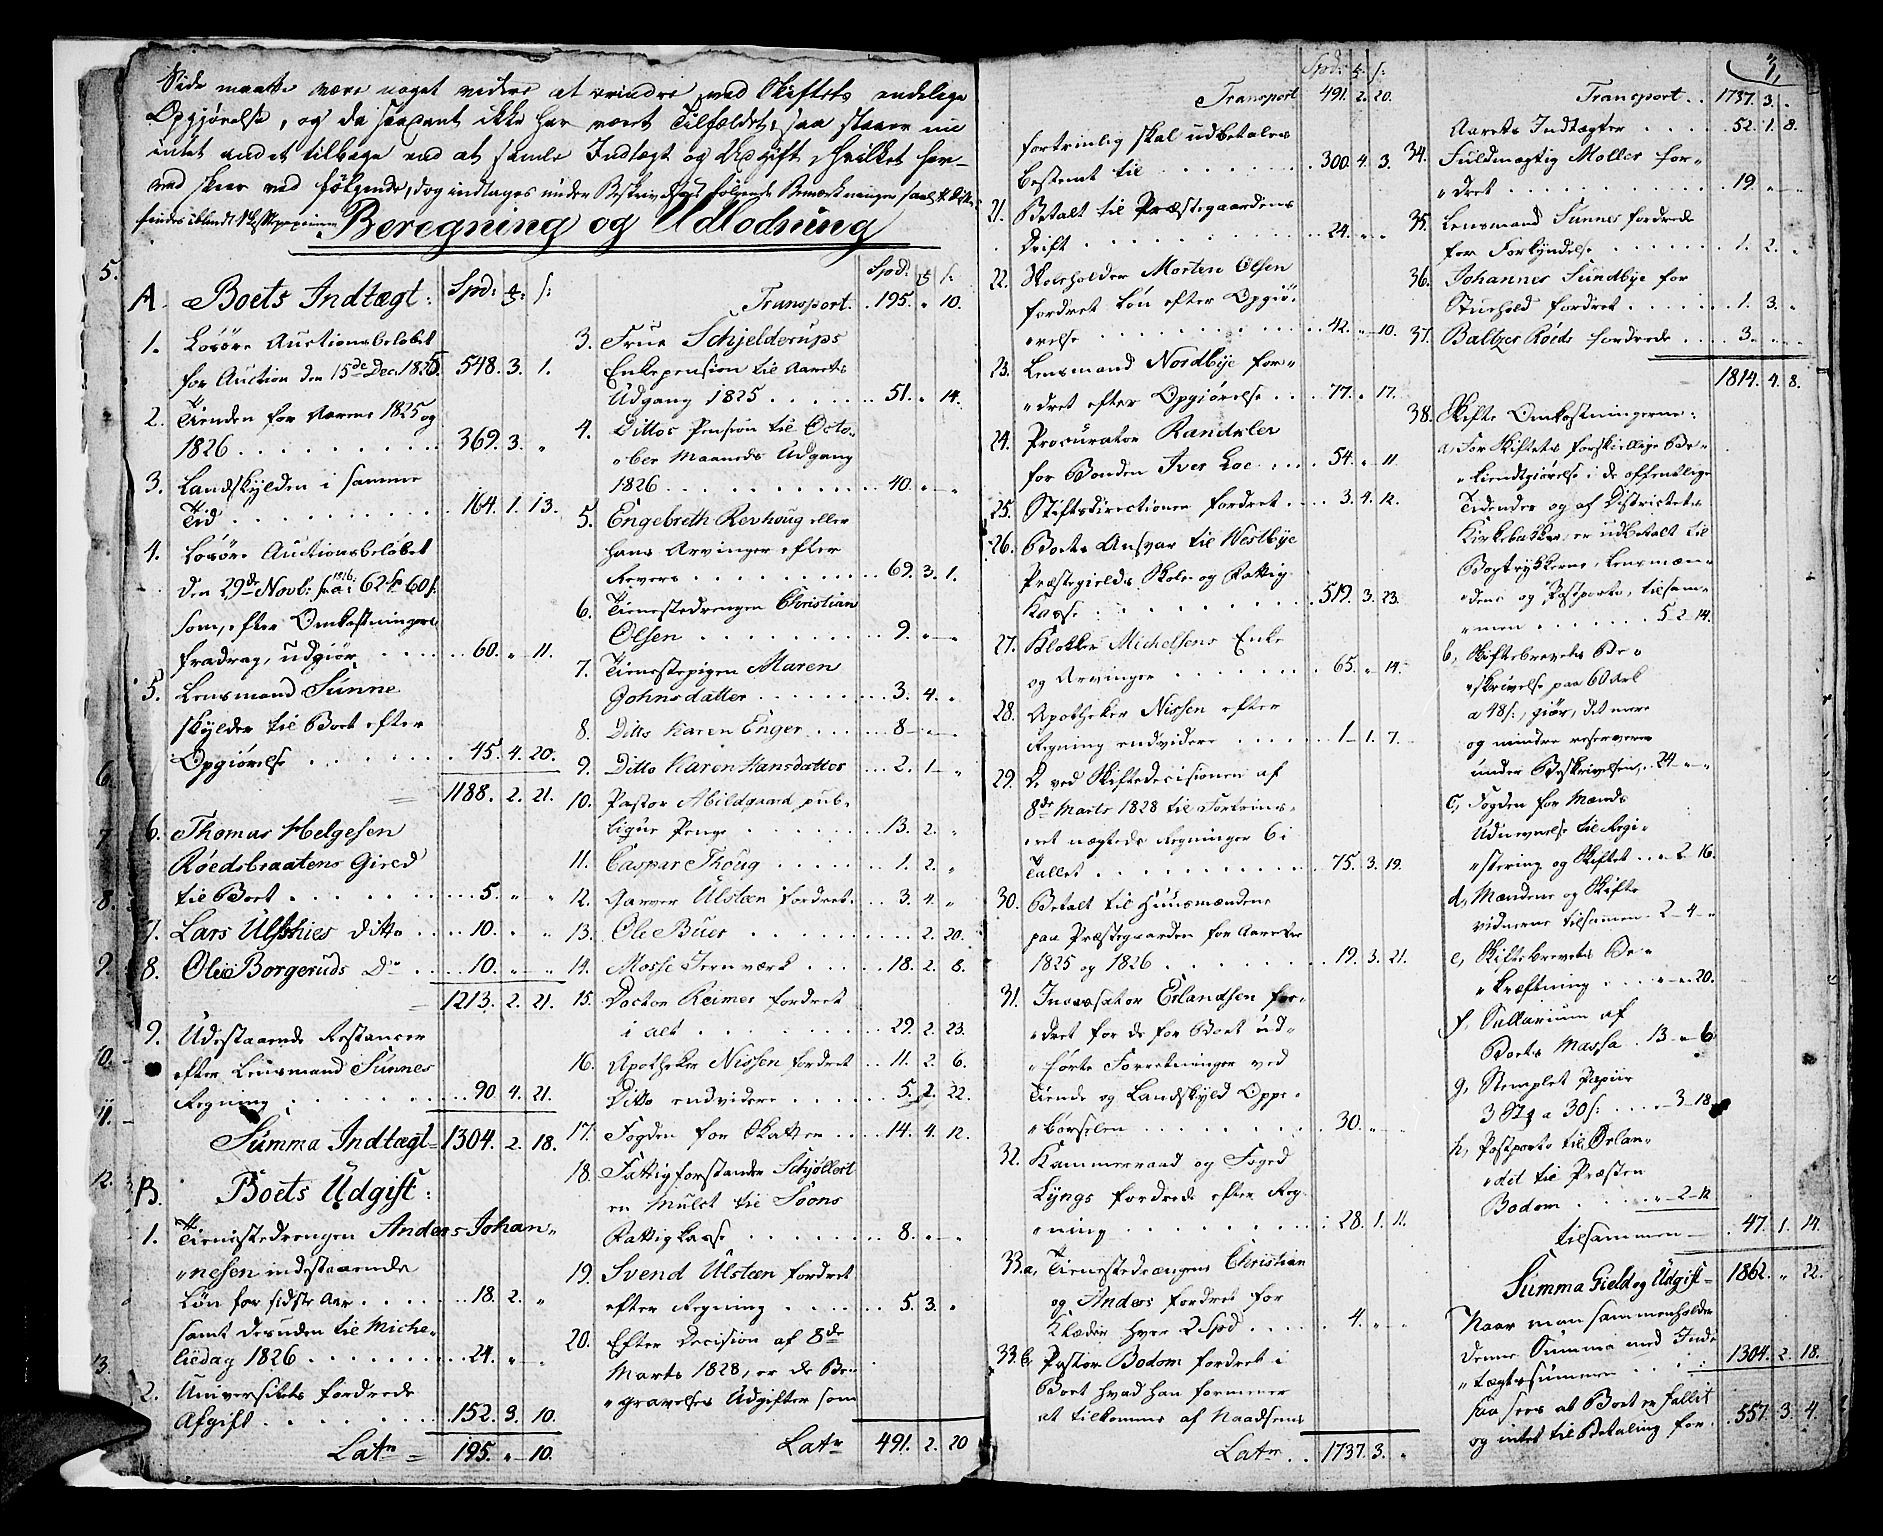 Side maatte være noget videre at erindre ved Skiftets endelige
Opgjørelse, og da saadant ikke har været Tilfældet, saa staaer nu
intet andet tilbage end at samle Indtægt og Udgift, hvilket her-
ved skeer ved følgende, dog indtages under Beskrivelsen følgende Bemærkninger
findes iblandt
Beregning og Udlodning
5.
A. Boets Indtægt: Spd: ℔: s:
1. Losøre Auctionsbeløbet
for Auction den 15de Dec. 1825. 548. 3. 1.
2. Tienden for Aarene 1825 og
1826 . . . 369. 3. "
3. Landskylden i samme
Tid . . . 164. 1. 13.
4. Losøre Auctionsbeløbet
den 29de Novb: 1826: 62 60 s:
som, efter Omkostningers
fradrag, udgiør . . . 60. " 11.
5. Lensmand Sunne
skylder til Boet efter
Opgiørelse . . . 45. 4. 20.
6. = 1188. 2. 21.
6. Thomas Helgesen
7. Røedsbraatens Gield
8. til Boet . . . 5. " "
7. Lars Ulshies ditto . . 10. " "
9. 8. Ole Borgeruds Do . . 10. " "
= 1213. 2. 21.
9. Udestaaende Restancer
10. efter Lensmand Sunnes
Regning . . . 90. 4. 21.
11. Summa Indtægt = 1304. 2. 18.
12. B. Boets Udgift:
1. Tienestedrengen Anders Johan-
"nesen indestaaende
Løn for sidste Aar . . . 18. 2. "
samt desuden til Miche-
13. liedag 1826 . . . 24. " "
2. Universitets fordrede
Afgift . . . 152. 3. 10.
Latr = 195. " 10.
Spd: ℔ s:
Transport. 195. " 10.
3. Frue Schjelderups
Enkepension til Aarets
Udgang 1825 . . . 51. " 14.
4. Dittos Pension til Octo-
"ber Maaneds Udgang
1826 . . . 40. " "
5. Engebreth Revhoug eller
hans Arvinger efter
Revers . . . 69. 3. 1.
6. Tienestedrengen Christian
Olsen . . . 9. " "
7. Tienestepigen Maren
Johnsdatter . . . 3. 4. "
8. Ditto Karen Enger . . . 8 " "
9. Ditto Karen Hansdatter . . . 2. 1 "
10. Pastor Abildgaard, pub-
lique Penge . . . 13. 2. "
11. Caspar Thoug . . . 1. 2. "
12. Garver Ulstæn fordret . . 3. 4. "
13. Ole Buer . . . . 2. 20.
14. Mosse Jernværk . . . 18. 2. 8.
15. Doctor Reimer fordret
i alt . . . 29. 2. 23.
16. Apotheker Nissen fordret . . 11. 2. 6.
Ditto endvidere . . . 5. 2. 22.
17. Fogden for Skatten . . 14. 4. 12.
18. Fattigforstander Schjøllert
en Mulct til Soons
Fattig Casse . . . 8. " "
19. Svend Ulstæn fordret
efter Regning . . . 5. 3. "
20. Efter Decision af 8de
Marts 1828, er de Be-
"gravelses Udgifter som
Latr 491. 2. 20
Spd: ℔: s:
Transport 491. 2. 20.
fortrinlig skal udbetales
bestemt til . . . 300. 4. 3.
21. Betalt til Præstegaardens
Drift . . . 24. " "
22. Skoleholder Morten Olsen
fordret Løn efter Opgiø-
relse . . . 42. " 10.
23. Lensmand Nordbye for-
"dret efter Opgiørelse . . 77. " 17.
24. Procurator Randuler
for Bonden Iver Loe . . . 54. " 11.
25. Stiftsdirectionen fordret . . 3. 4. 12.
26. Boets Ansvar til Westbye
Præstegields Skole og Fattig
Kasse . . . 519. 3. 23.
27. Klokker Michelsens Enke
og Arvinger . . . 65. " 14.
28. Apotheker Nissen efter
Regning endvidere . . . 1 1. 7.
29. De ved Skiftedecisionen af
8de Marts 1828 til Fortrins-
"ret nægtede Regninger 6 i
Tallet . . . 75. 3. 19.
30. Betalt til Huusmændene
paa Præstegaarden for Aarene
1825 og 1826 . . . 19. 3. 21.
31. Incassator Erlandsen for-
"dret for de for Boet ud-
"førte Forretninger ved
Tiende og Landskyld Oppe-
"børselen . . . 30. " "
32. Kammerraad og Foged
Lyngs fordrede efter Reg-
"ning . . . 28. 1. 11.
33.a, Tienestedrengene Christian
og Anders fordret for
Klæder hver 2 Spd . . . 4. " "
33.b, Pastor Bodom fordret i
Boet hvad han formener
at tilkomme af Naadsens
Latr . . 1737. 3. "
7.
Transport . . 1737. 3. "
Aarets Indtægter . . . 52. 1. 8.
34. Fuldmægtig Møller for-
"dret . . . 19 " "
35. Lensmand Sunnes fordrede
for Forkyndelse . . . 1. 2. "
36. Johannes Sundbye for
Stuehold fordret . . . 1. 3. "
37. Baltzer Røeds fordrede . . . 3. " "
1814. 4. 8.
38. Skifte Omkostningerne:
a, For Skiftets forskiellige Be-
"kiendtgiørelse i de offentlige
Tidender og af Districtets
Kirkebakker, er udbetalt til
Bogtrykkerne, Lensmæn-
"dene og Postporto, tilsam-
"men . . . 5 2 14.
b, Skiftebrevets Be-
"skrivelse paa 60 Ark
a 48 s:, giør, det mere
og mindre reserveres
under Beskrivelsen, . 24 " "
c, Fogden for Mænds
Udnevnelse til Regi-
"strering og Skiftet . . 2 16.
d, Mændene og Skifte
vidnerne tilsamen . 2 4 "
e, Skiftebrevets Be-
"kræftning . . . " " 20.
f, Sallarium af
Boets Massa . 13 " 6
g, Stemplet Papiir
3 St: a 30 s: . . . 3 18
h, Postporto til Ørlan-
"det til Præsten
Bodom . . . " 2 12
tilsammen . 47. 1. 14.
Summa Gield og Udgift 1862. " 22.
Naar man sammenholder
denne Summa med Ind-
"tægtssummen . . . 1304. 2. 18.
saa sees at Boet er fallit
og intet til Betaling for . 557. 3. 4.